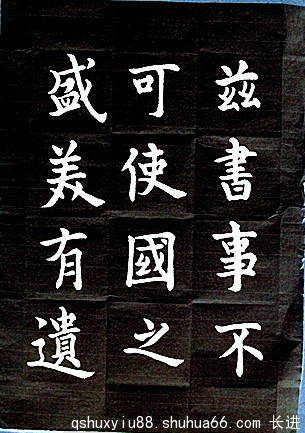 茲書事不
可使國之
盛美有遺
qshuxyiu88.shuhua66.com 长进